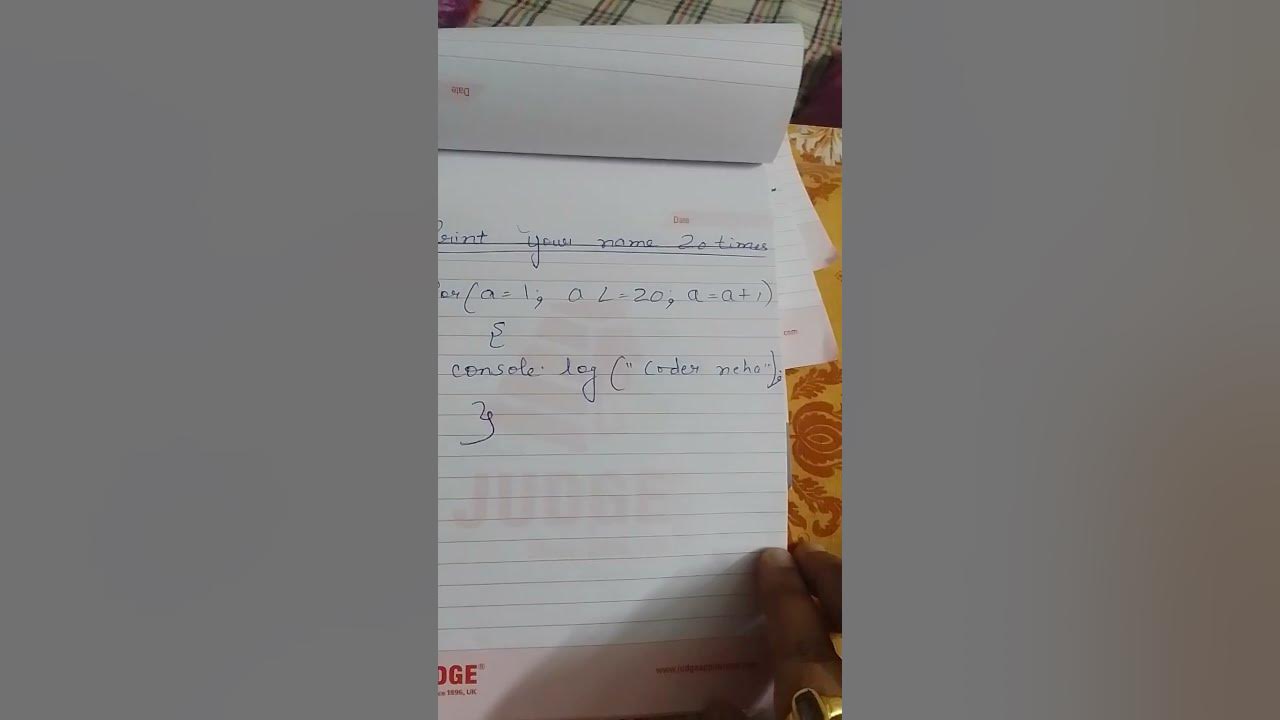 Date
Date
Print your name 20 times
for(a=1; a <=20; a=a+1)
{
console.log("Coder neha");
}
com
JUDGE
DGE®
ce 1896, UK